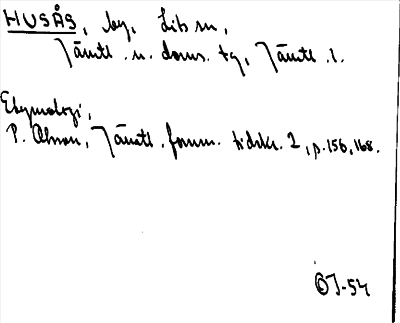 HUSÅS, by, Lits sn,
Jämtl. n. doms. tg, Jämtl. l.
Etymologi,
P. Olsson, Jämtl. fornm. tidskr. 2, p. 156, 168.
OJ-54